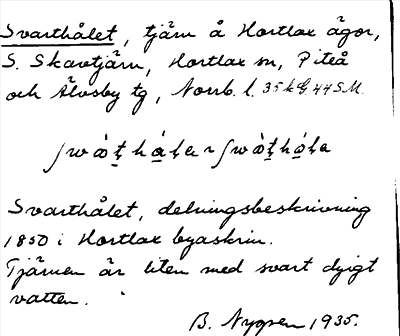 Svarthålet, tjärn å Hortlax ägor,
S. Skavtjärn, Hortlax sn, Piteå
och Älvsby tg, Norrb. l. 35 k G. 44 S.M.
Svarthålet, delningsbeskrivning
1850 i Hortlax byaskrin.
Tjärnen är liten med svart dyigt
vatten.
B. Nygren 1935.